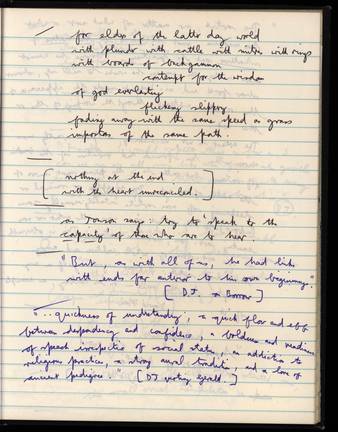 for elders of the latter day world
with plunder with cattle with mitres with rings
with boards of backgammon
contempt for the wisdom
of god everlasting
flicking slippery
fading away with the same speed as grass
of the same path.
[ nothing at the end
with the heart unreconciled. ]
as Jonson says: try to 'speak to the
capacity' of those who are to hear.
"But, as with all of us, he had links
with ends far anterior to his own beginnings."
[ DJ. on Borrow ]
"... quickness of understanding, a quick flow and ebb
between despondency and confidence, a boldness and readiness
of speech irrespective of social status, an addiction to
religious practice, a strong aural tradition, and a love of
ancient pedigree." [ DJ quoting Gerald. ]